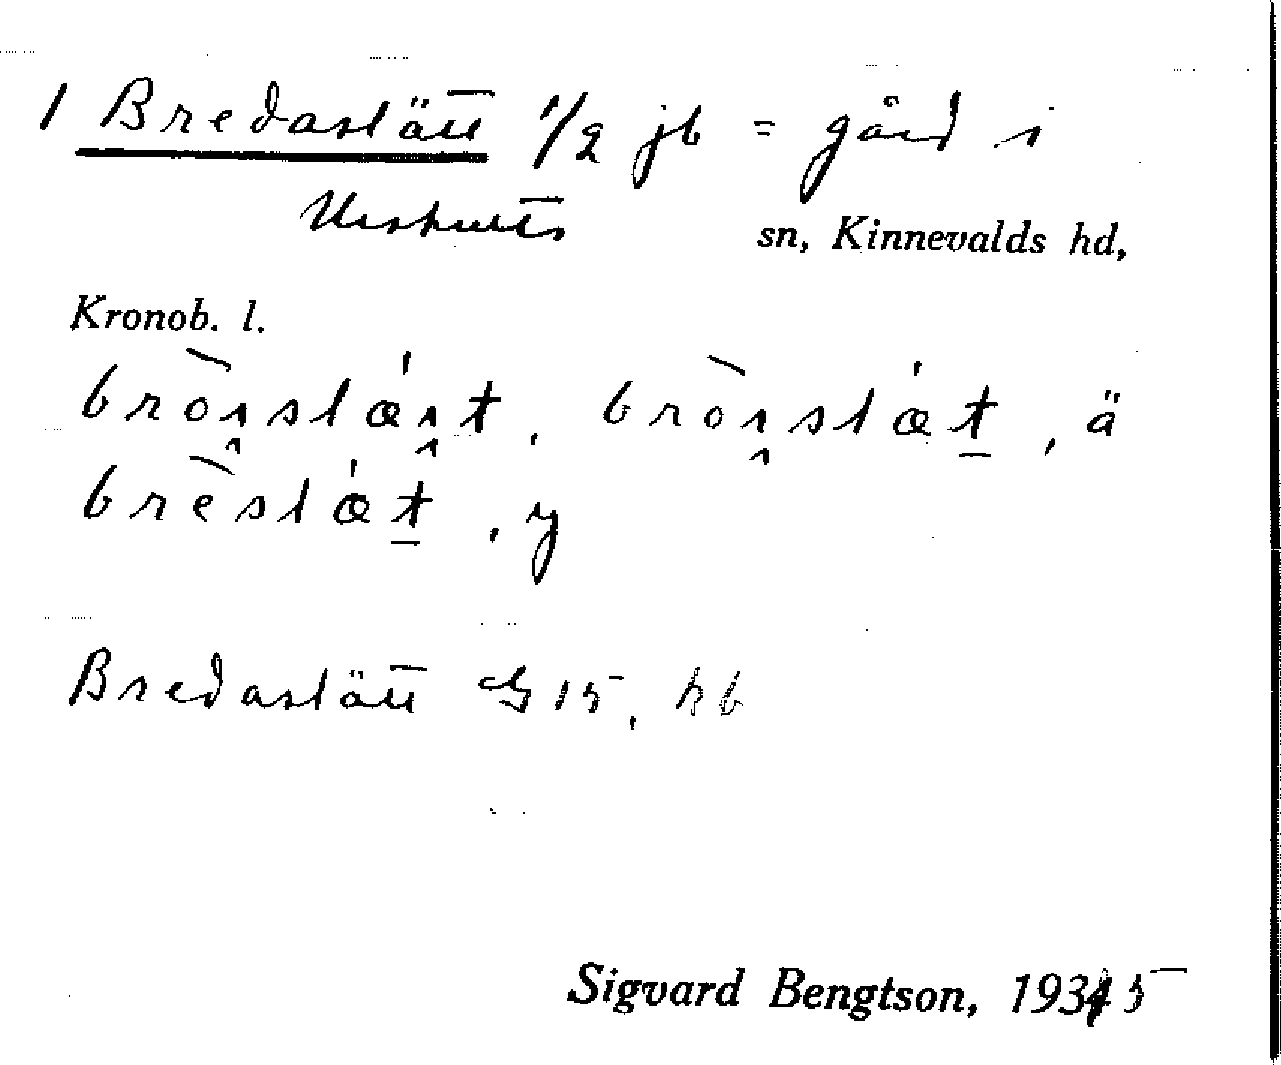 1 Bredastätt 1/2 jb = gård i
Urshults sn, Kinnevalds hd,
Kronob. l.
brò̱nstǽnt, brò̱nstǽt, ä
brèstǽt, y
Bredastätt G 15, hb
Sigvard Bengtson, 1935